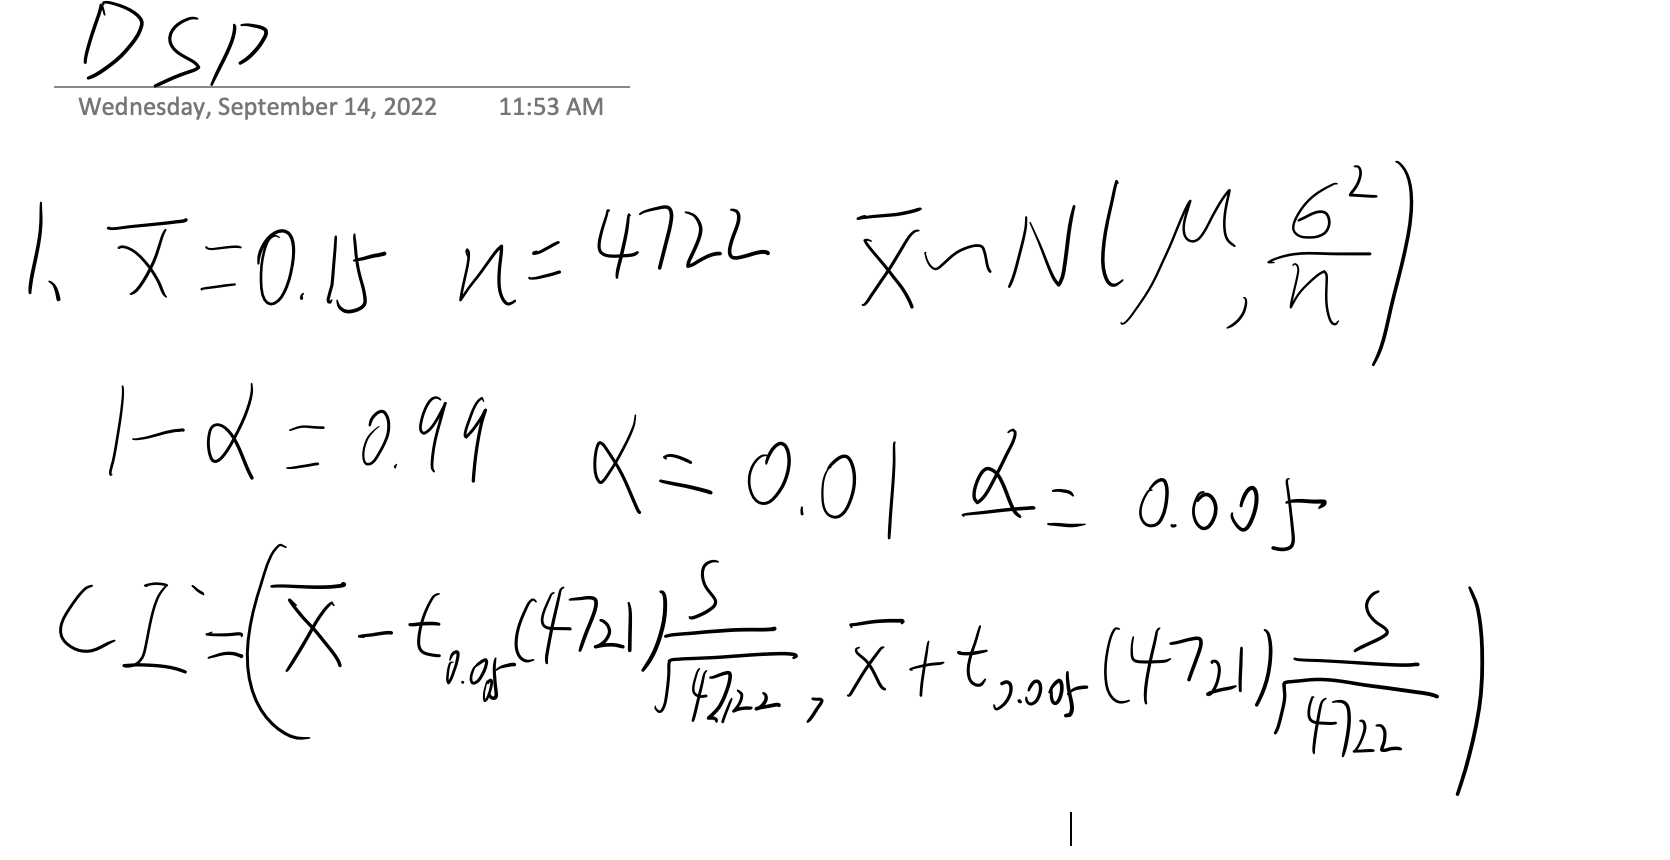 DSP
Wednesday, September 14, 2022 11:53 AM
1、 x̄ = 0.15 n = 4722 x̄ ~ N(μ, σ²/n)
1-α = 0.99 α = 0.01 α = 0.005
CI = (x̄ - t0.005(4721) S/√4722, x̄ + t0.005(4721) S/√4722)